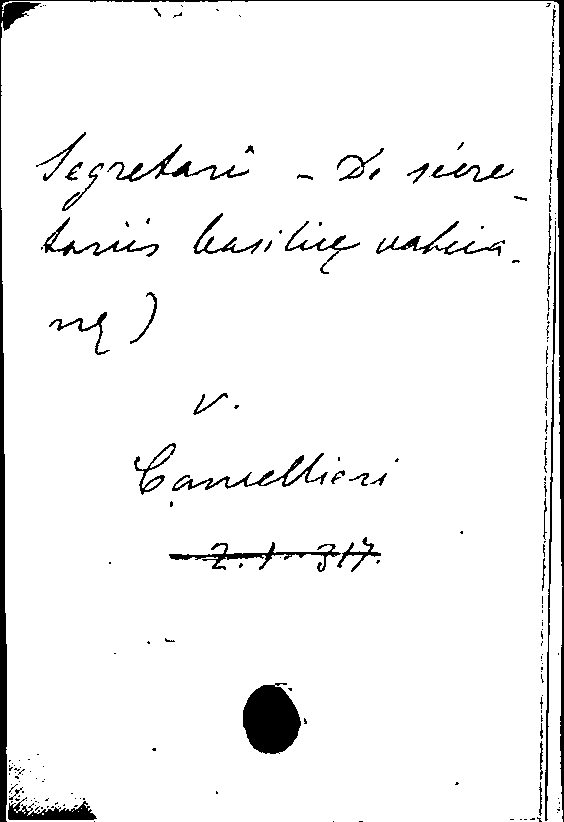 Segretari – De secre-
tariis basilicę vatica-
nę)
v.
Cancellieri
2. 1. 317.